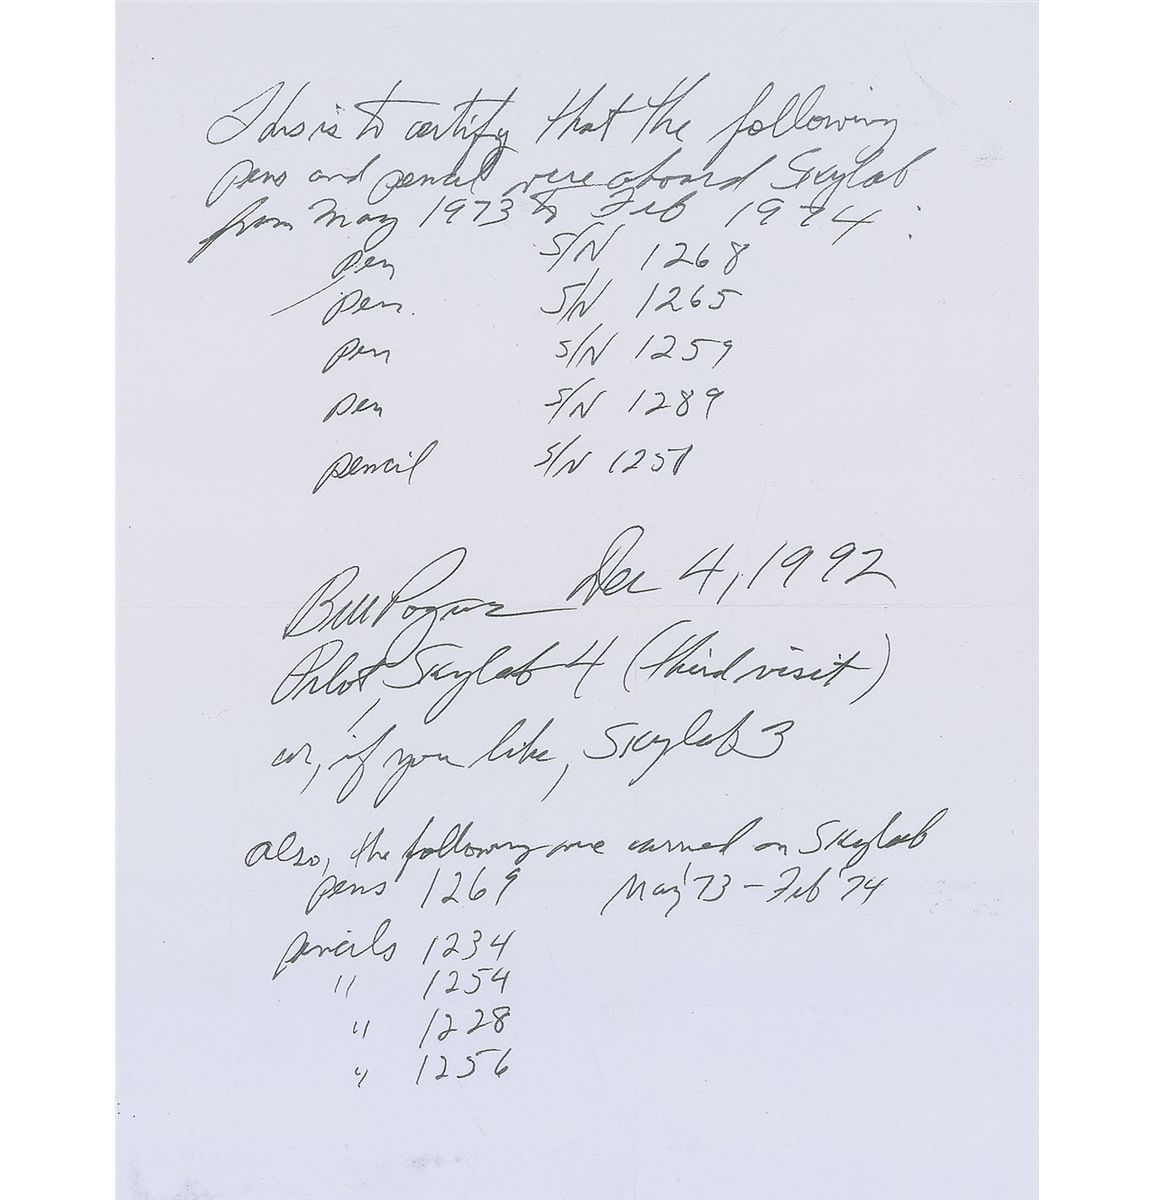 This is to certify that the following
pens and pencil were aboard Skylab
from May 1973 to Feb 1974:
pen S/N 1268
pen S/N 1265
pen S/N 1259
pen S/N 1289
pencil S/N 1251
Bill Pogue Dec 4, 1992
Pilot, Skylab 4 (third visit)
or, if you like, Skylab 3
Also, the following were carried on Skylab
pens 1269 May '73 - Feb '74
pencils 1234
" 1254
" 1228
" 1256